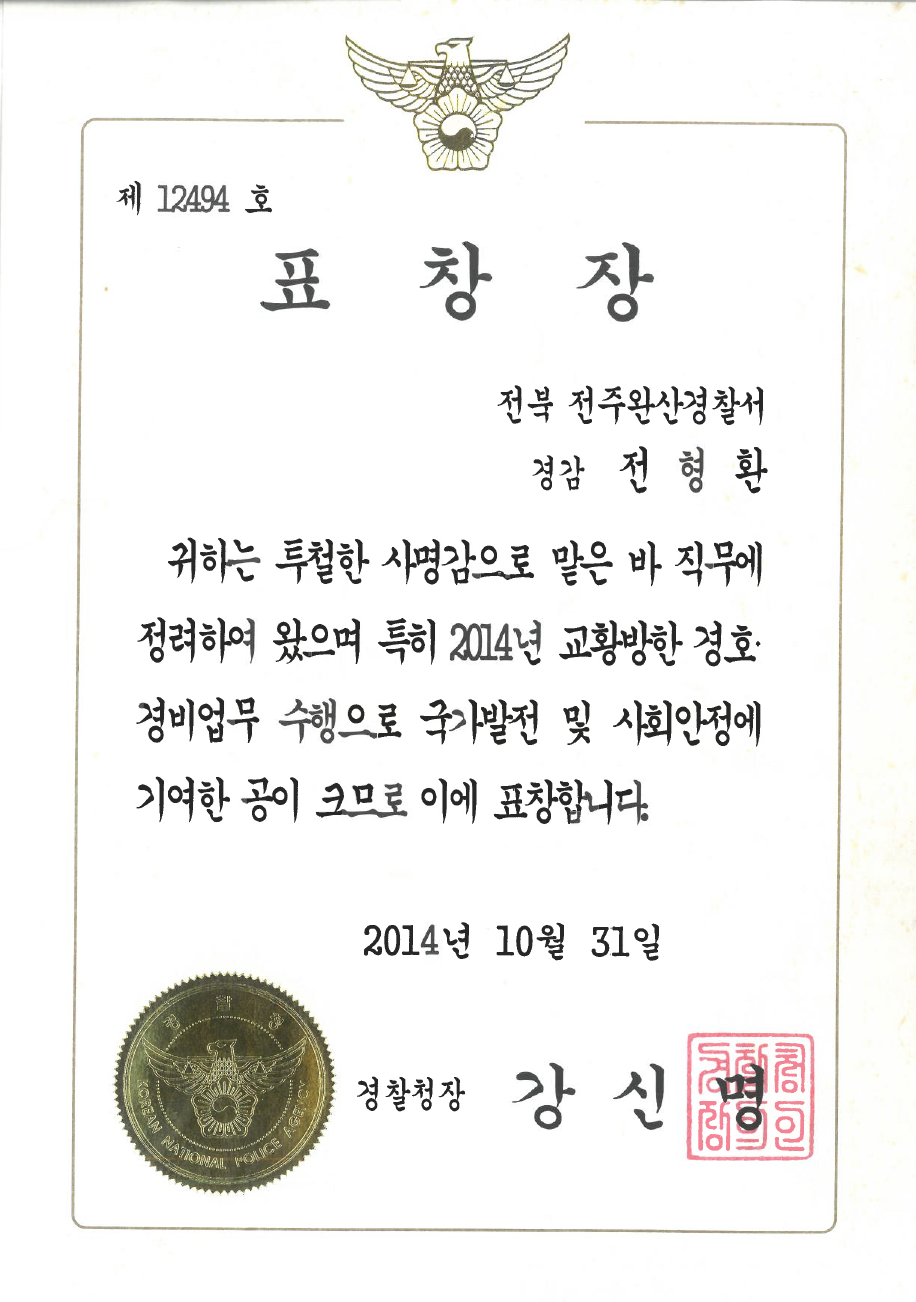 제 12494 호
표 창 장
전북 전주완산경찰서
경감 전 형 환
귀하는 투철한 사명감으로 맡은 바 직무에
정려하여 왔으며 특히 2014년 교황방한 경호·
경비업무 수행으로 국가발전 및 사회안정에
기여한 공이 크므로 이에 표창합니다.
2014년 10월 31일
경찰청
KOREAN NATIONAL POLICE AGENCY
경찰청장 강 신 명